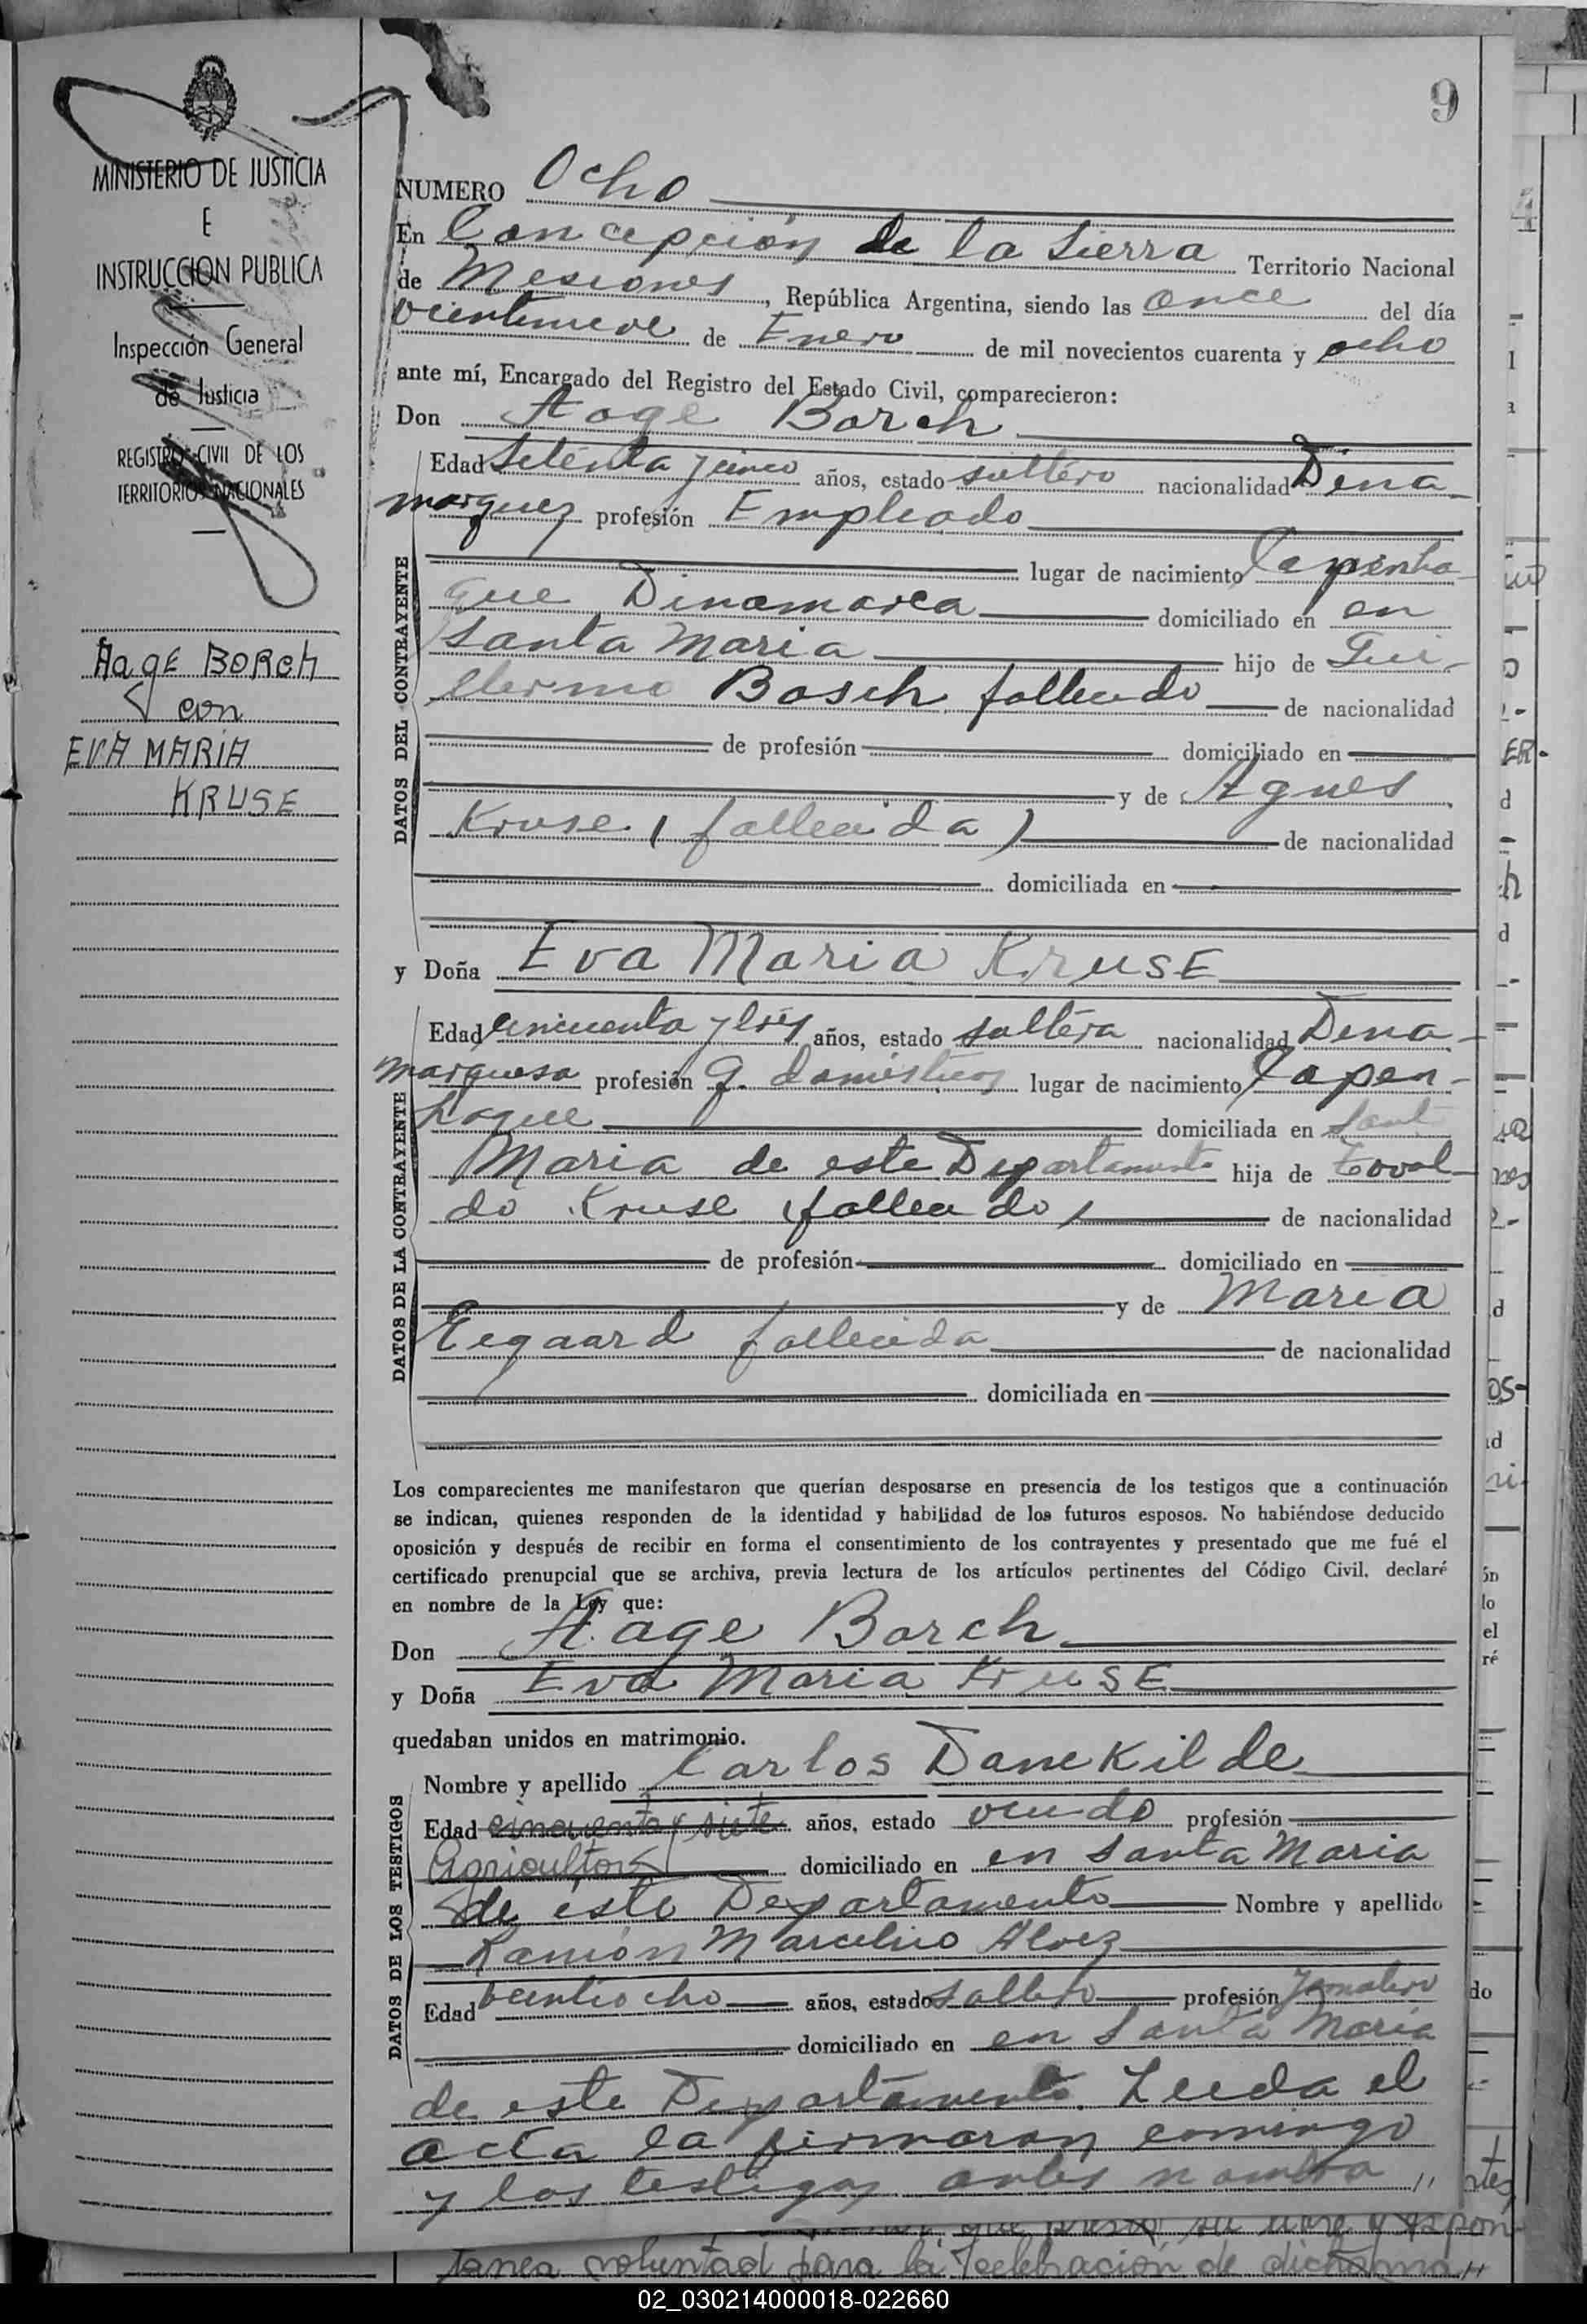 9
MINISTERIO DE JUSTICIA
E
INSTRUCCION PUBLICA
Inspección General
de Justicia
REGISTRO CIVIL DE LOS
TERRITORIOS NACIONALES
Aage BORch
con
EVA MARIA
KRUSE
NUMERO Ocho
En Concepción de la Sierra Territorio Nacional
de Mesiones, República Argentina, siendo las once del día
veintinueve de Enero de mil novecientos cuarenta y ocho
ante mí, Encargado del Registro del Estado Civil, comparecieron:
Don Aage Borch
Edad Setenta y cinco años, estado soltero nacionalidad Dina-
marquez profesión Empleado
lugar de nacimiento Copenha-
gue Dinamarca domiciliado en en
Santa Maria hijo de Gui-
llermo Bosch fallecido de nacionalidad
de profesión domiciliado en
y de Agnes
Kruse (fallecida) de nacionalidad
domiciliada en
y Doña Eva Maria KRUSE
Edad cincuenta y tres años, estado soltera nacionalidad Dina-
marquesa profesión Q. domésticos lugar de nacimiento Copen-
hague domiciliada en Sant
Maria de este Departamento hija de
do Kruse (fallecido) de nacionalidad
de profesión domiciliado en
y de Maria
Eegaard fallecida de nacionalidad
domiciliada en
DATOS DEL CONTRAYENTE
DATOS DE LA CONTRAYENTE
Los comparecientes me manifestaron que querían desposarse en presencia de los testigos que a continuación
se indican, quienes responden de la identidad y habilidad de los futuros esposos. No habiéndose deducido
oposición y después de recibir en forma el consentimiento de los contrayentes y presentado que me fué el
certificado prenupcial que se archiva, previa lectura de los artículos pertinentes del Código Civil, declaré
en nombre de la Ley que:
Don Aage Borch
y Doña Eva Maria KRUSE
quedaban unidos en matrimonio.
Nombre y apellido Carlos Danekilde
Edad cincuenta y siete años, estado viudo profesión
Agricultor domiciliado en en Santa Maria
de este Departamento Nombre y apellido
Ramón Marcelino Alvez
Edad veintiocho años, estado soltero profesión Jornalero
domiciliado en en Santa Maria
DATOS DE LOS TESTIGOS
de este Departamento. Leida el
acta la firmaron conmigo
y los testigos antes nombra "
tanea voluntad para la celebración de dicho
02_030214000018-022660